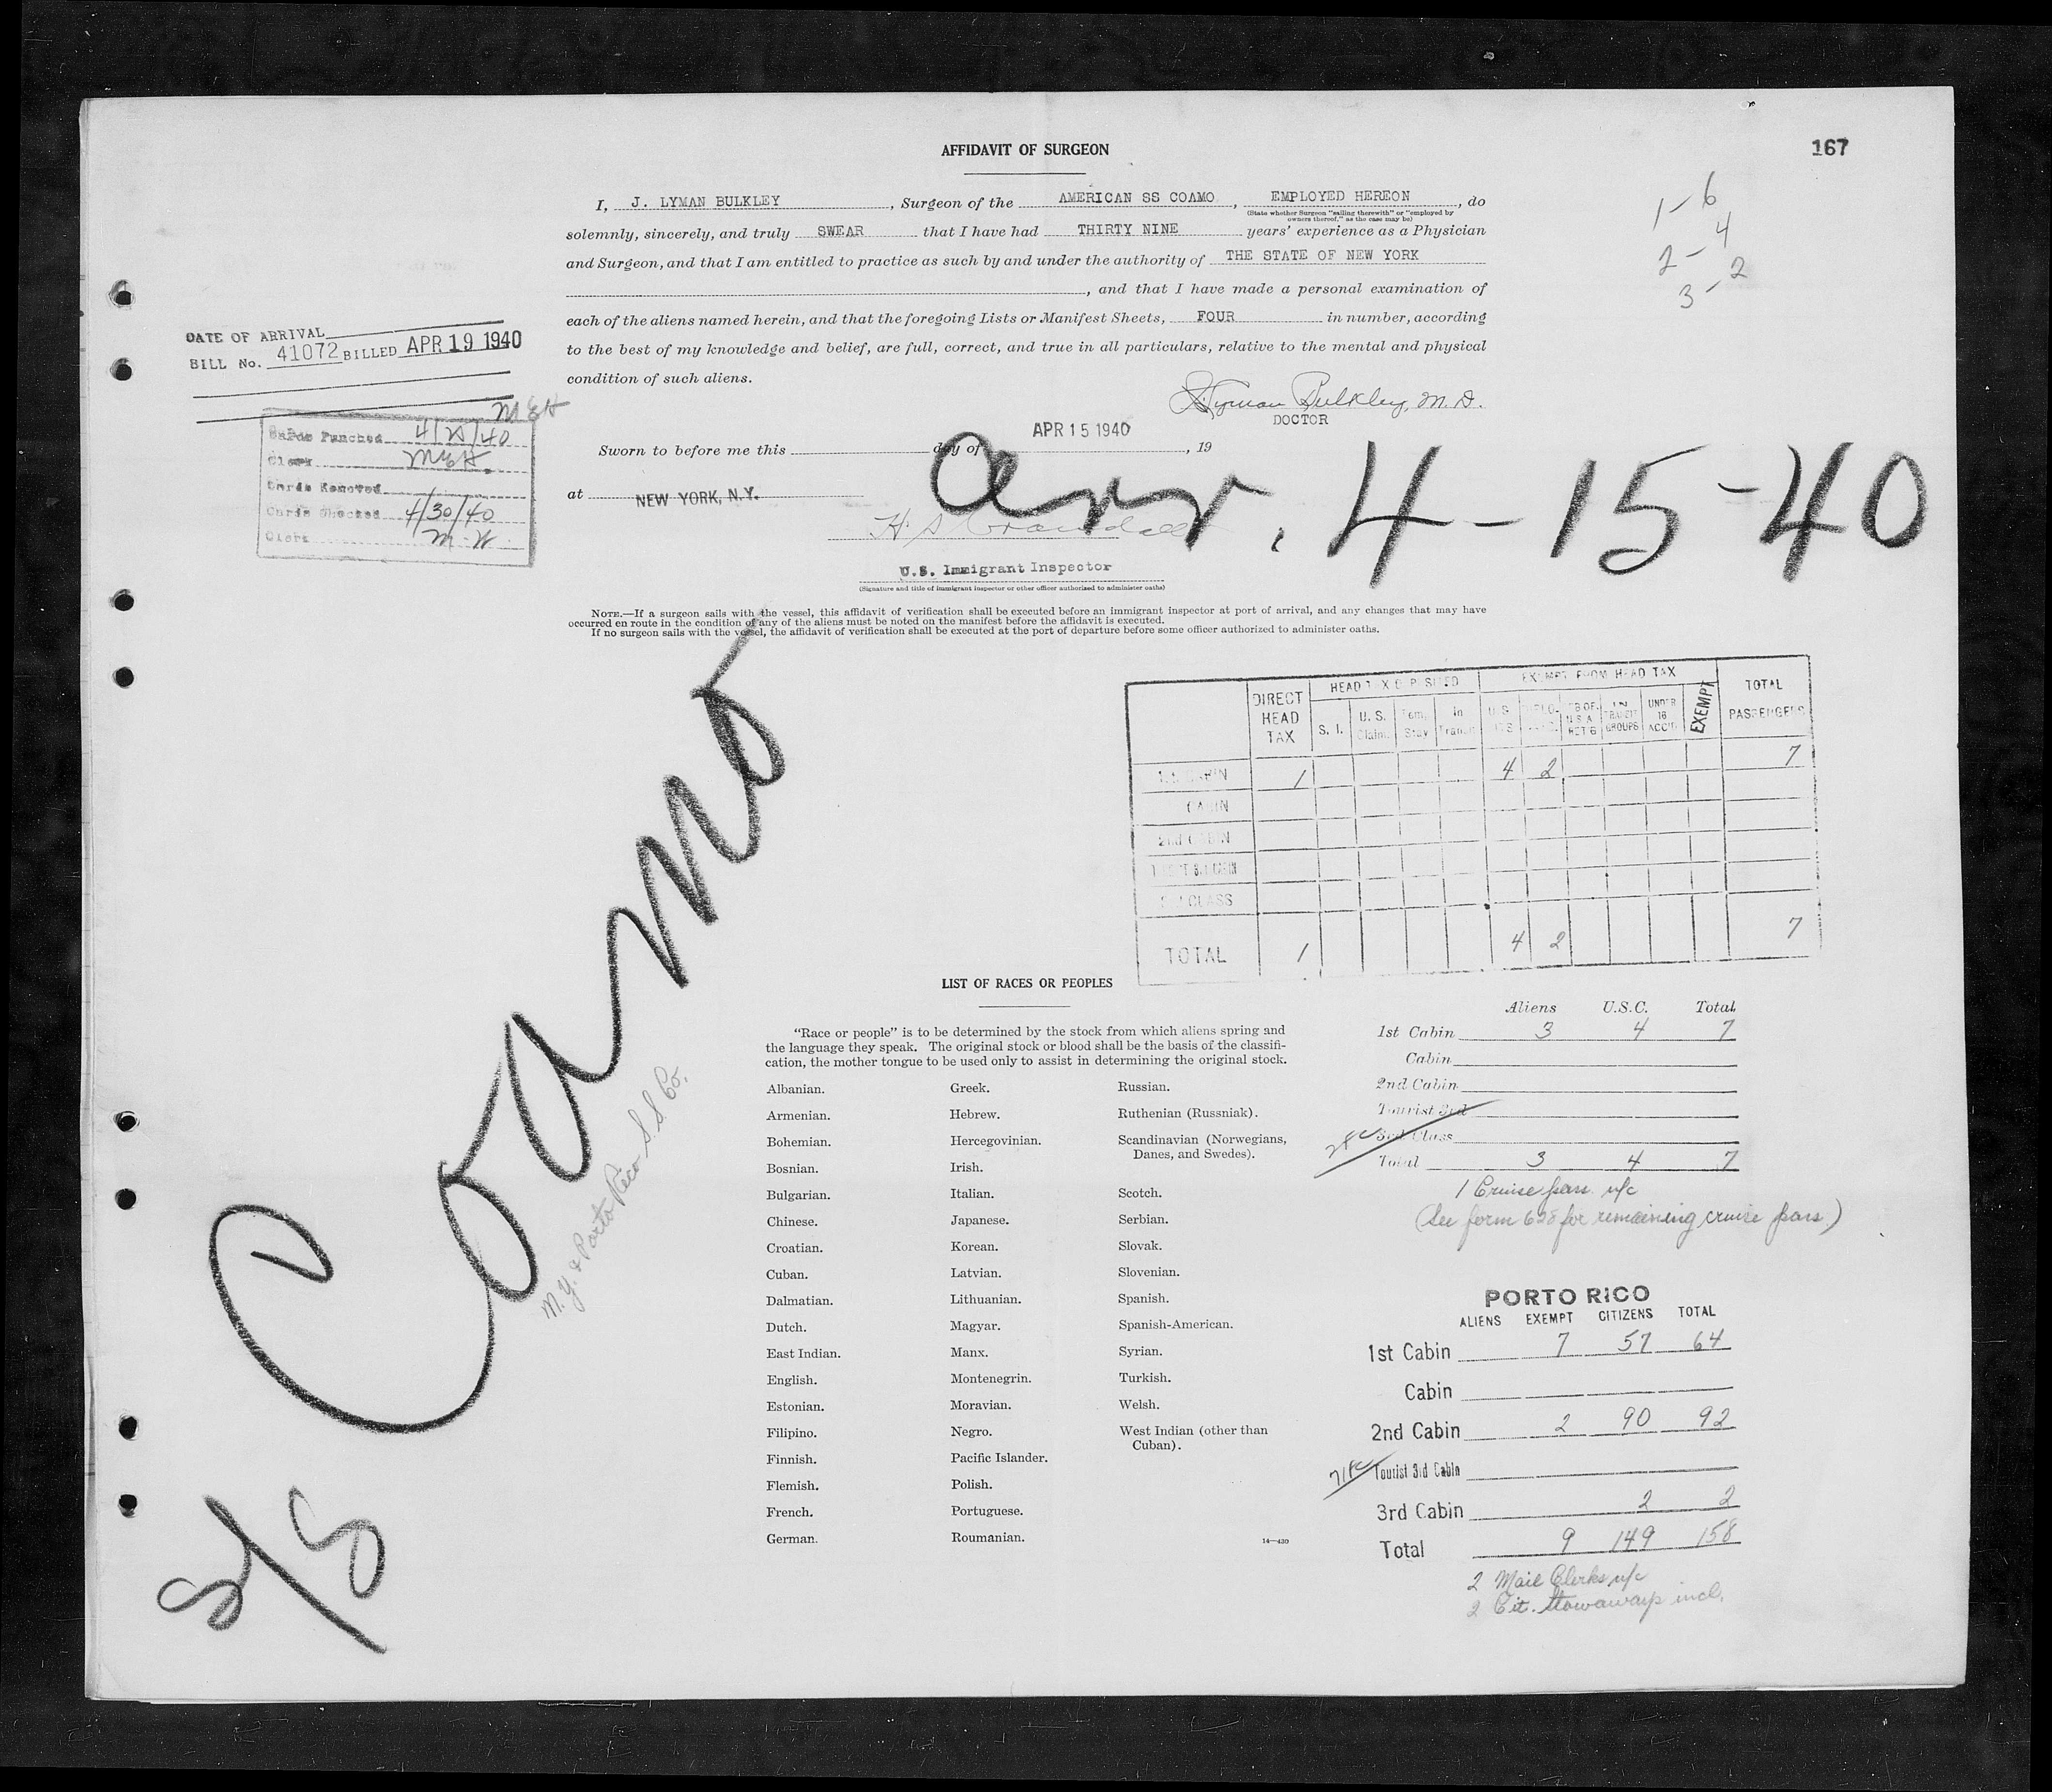 AFFIDAVIT OF SURGEON
167
I, J. LYMAN BULKLEY, Surgeon of the AMERICAN SS COAMO, EMPLOYED HEREON, do
(State whether Surgeon "sailing therewith" or "employed by owners thereof," as the case may be)
solemnly, sincerely, and truly SWEAR that I have had THIRTY NINE years' experience as a Physician
and Surgeon, and that I am entitled to practice as such by and under the authority of THE STATE OF NEW YORK
, and that I have made a personal examination of
each of the aliens named herein, and that the foregoing Lists or Manifest Sheets, FOUR in number, according
to the best of my knowledge and belief, are full, correct, and true in all particulars, relative to the mental and physical
condition of such aliens.
1-6
2-4
3-2
DATE OF ARRIVAL
BILL No. 41072 BILLED APR 19 1940
MEH
Cards Punched 4/25/40
Clerk MEH.
Cards Removed
Cards Checked 4/30/40
Clerk M-W
J. Lyman Bulkley, M.D.
DOCTOR
Sworn to before me this day of APR 15 1940, 19
at NEW YORK, N.Y.
arr. 4-15-40
H. S. Crandall
U.S. Immigrant Inspector
(Signature and title of immigrant inspector or other officer authorized to administer oaths)
NOTE.—If a surgeon sails with the vessel, this affidavit of verification shall be executed before an immigrant inspector at port of arrival, and any changes that may have
occurred en route in the condition of any of the aliens must be noted on the manifest before the affidavit is executed.
If no surgeon sails with the vessel, the affidavit of verification shall be executed at the port of departure before some officer authorized to administer oaths.
S/S Coamo
N.Y. & Porto Rico S.S. Co.
DIRECT HEAD TAX
HEAD TAX DEPOSITED
EXEMPT FROM HEAD TAX
TOTAL PASSENGERS
S. I.
U. S. Claim.
Tem. Stay
In Transit
UNDER 16 ACC'D
EXEMPT
1st CABIN 1 4 2 7
CABIN
2nd CABIN
TOURIST 3rd CABIN
3rd CLASS
TOTAL 1 4 2 7
LIST OF RACES OR PEOPLES
"Race or people" is to be determined by the stock from which aliens spring and
the language they speak. The original stock or blood shall be the basis of the classifi-
cation, the mother tongue to be used only to assist in determining the original stock.
Albanian.
Armenian.
Bohemian.
Bosnian.
Bulgarian.
Chinese.
Croatian.
Cuban.
Dalmatian.
Dutch.
East Indian.
English.
Estonian.
Filipino.
Finnish.
Flemish.
French.
German.
Greek.
Hebrew.
Hercegovinian.
Irish.
Italian.
Japanese.
Korean.
Latvian.
Lithuanian.
Magyar.
Manx.
Montenegrin.
Moravian.
Negro.
Pacific Islander.
Polish.
Portuguese.
Roumanian.
Russian.
Ruthenian (Russniak).
Scandinavian (Norwegians,
Danes, and Swedes).
Scotch.
Serbian.
Slovak.
Slovenian.
Spanish.
Spanish-American.
Syrian.
Turkish.
Welsh.
West Indian (other than
Cuban).
14—430
Aliens U.S.C. Total
1st Cabin 3 4 7
Cabin
2nd Cabin
Tourist 3rd
3rd Class
Total 3 4 7
1 Cruise pass. n/c
(See form 628 for remaining cruise pass.)
PORTO RICO
ALIENS EXEMPT CITIZENS TOTAL
1st Cabin 7 57 64
Cabin
2nd Cabin 2 90 92
Tourist 3rd Cabin
3rd Cabin 2 2
Total 9 149 158
2 Mail Clerks n/c
2 Cit. Stowaways incl.